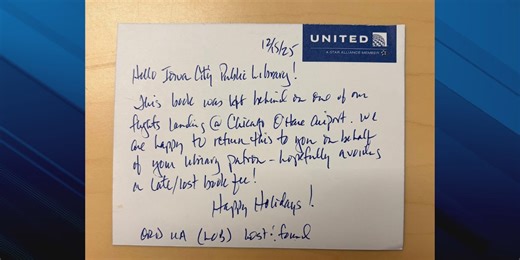 UNITED
A STAR ALLIANCE MEMBER
12/15/25
Hello Iowa City Public Library!
This book was left behind on one of our
flights landing @ Chicago O'Hare Airport. We
are happy to return this to you on behalf
of your library patron - hopefully avoiding
a late/lost book fee!
Happy Holidays!
ORD UA (LCB) Lost & found